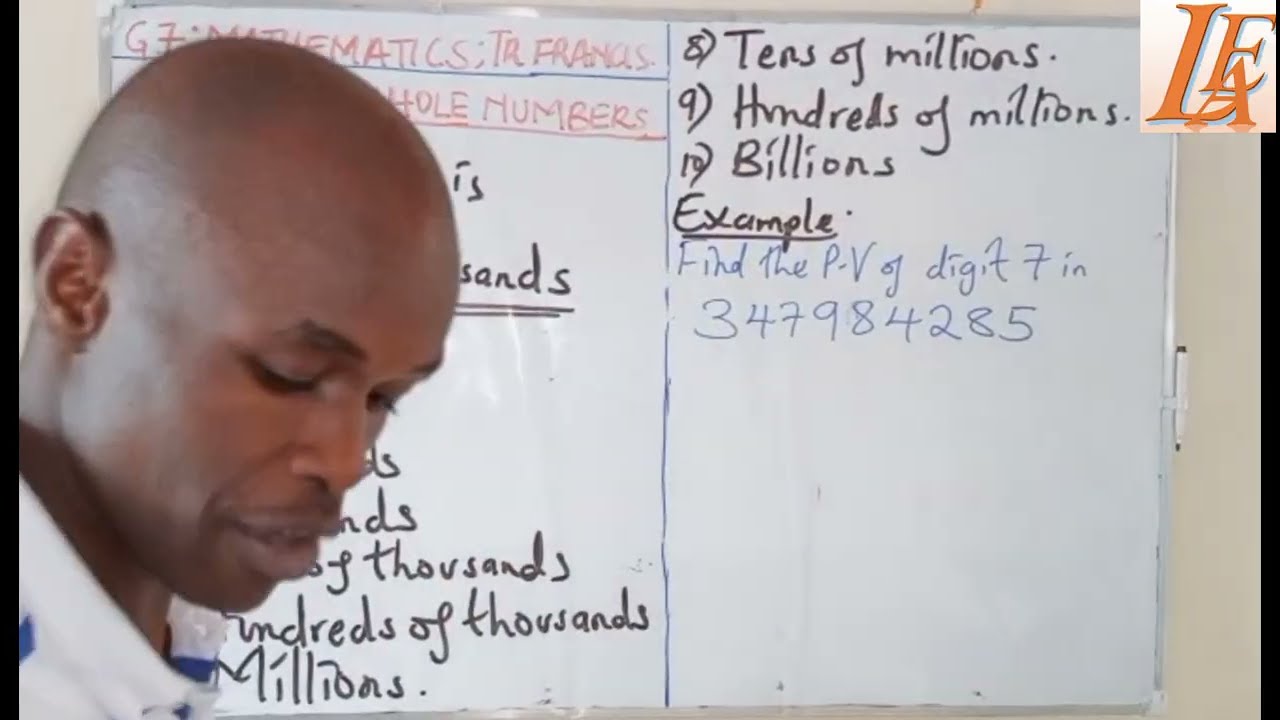 G7: MATHEMATICS; TR FRANCIS.
HOLE NUMBERS
is
sands
ds
nds
of thousands
undreds of thousands
Millions.
8) Tens of millions.
9) Hundreds of millions.
10) Billions
Example.
Find the P.V of digit 7 in
347984285
LFA